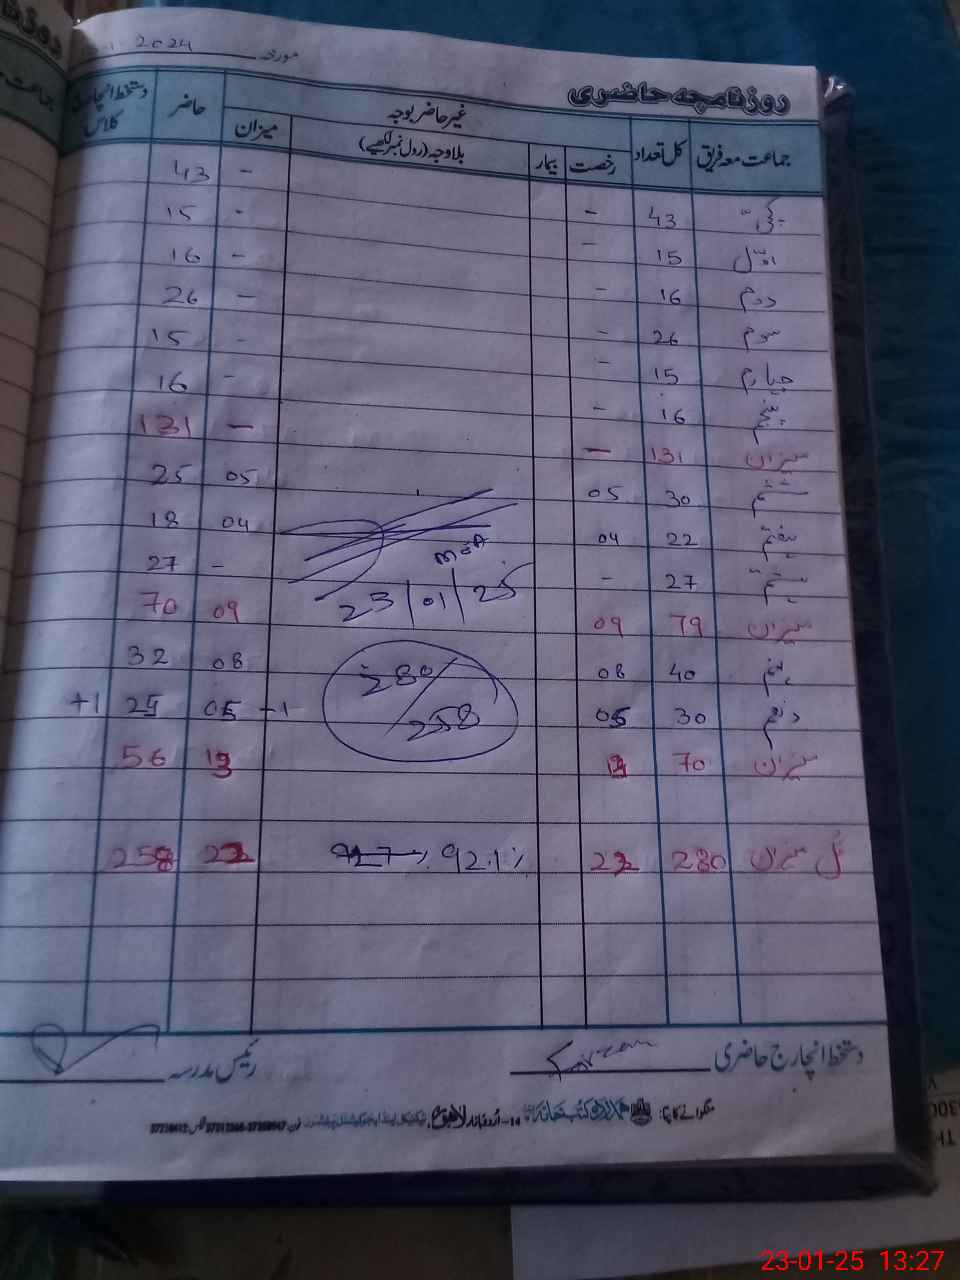 2024 مورخہ
روزنامچہ حاضری
جماعت معہ فریق کل تعداد غیر حاضر بوجہ حاضر دستخط انچارج کلاس
رخصت بیمار بلاوجہ (رول نمبر لکھیے) میزان
پکی 43 - - 43
اول 15 - - 15
دوم 16 - - 16
سوم 26 - - 26
چہارم 15 - - 15
پنجم 16 - - 16
میزان 131 - - 131
ششم 30 05 05 25
ہفتم 22 04 04 18
ہشتم 27 - - 27
میزان 79 09 09 70
نہم 40 08 08 32
دہم 30 05 05 -1 25 +1
میزان 70 13 13 56
کل میزان 280 22 92.1% 22 258
MEA
23/01/25
280/258
دستخط انچارج حاضری رئیس مدرسہ
منگوانے کا پتہ: اردو بازار لاہور
23-01-25 13:27